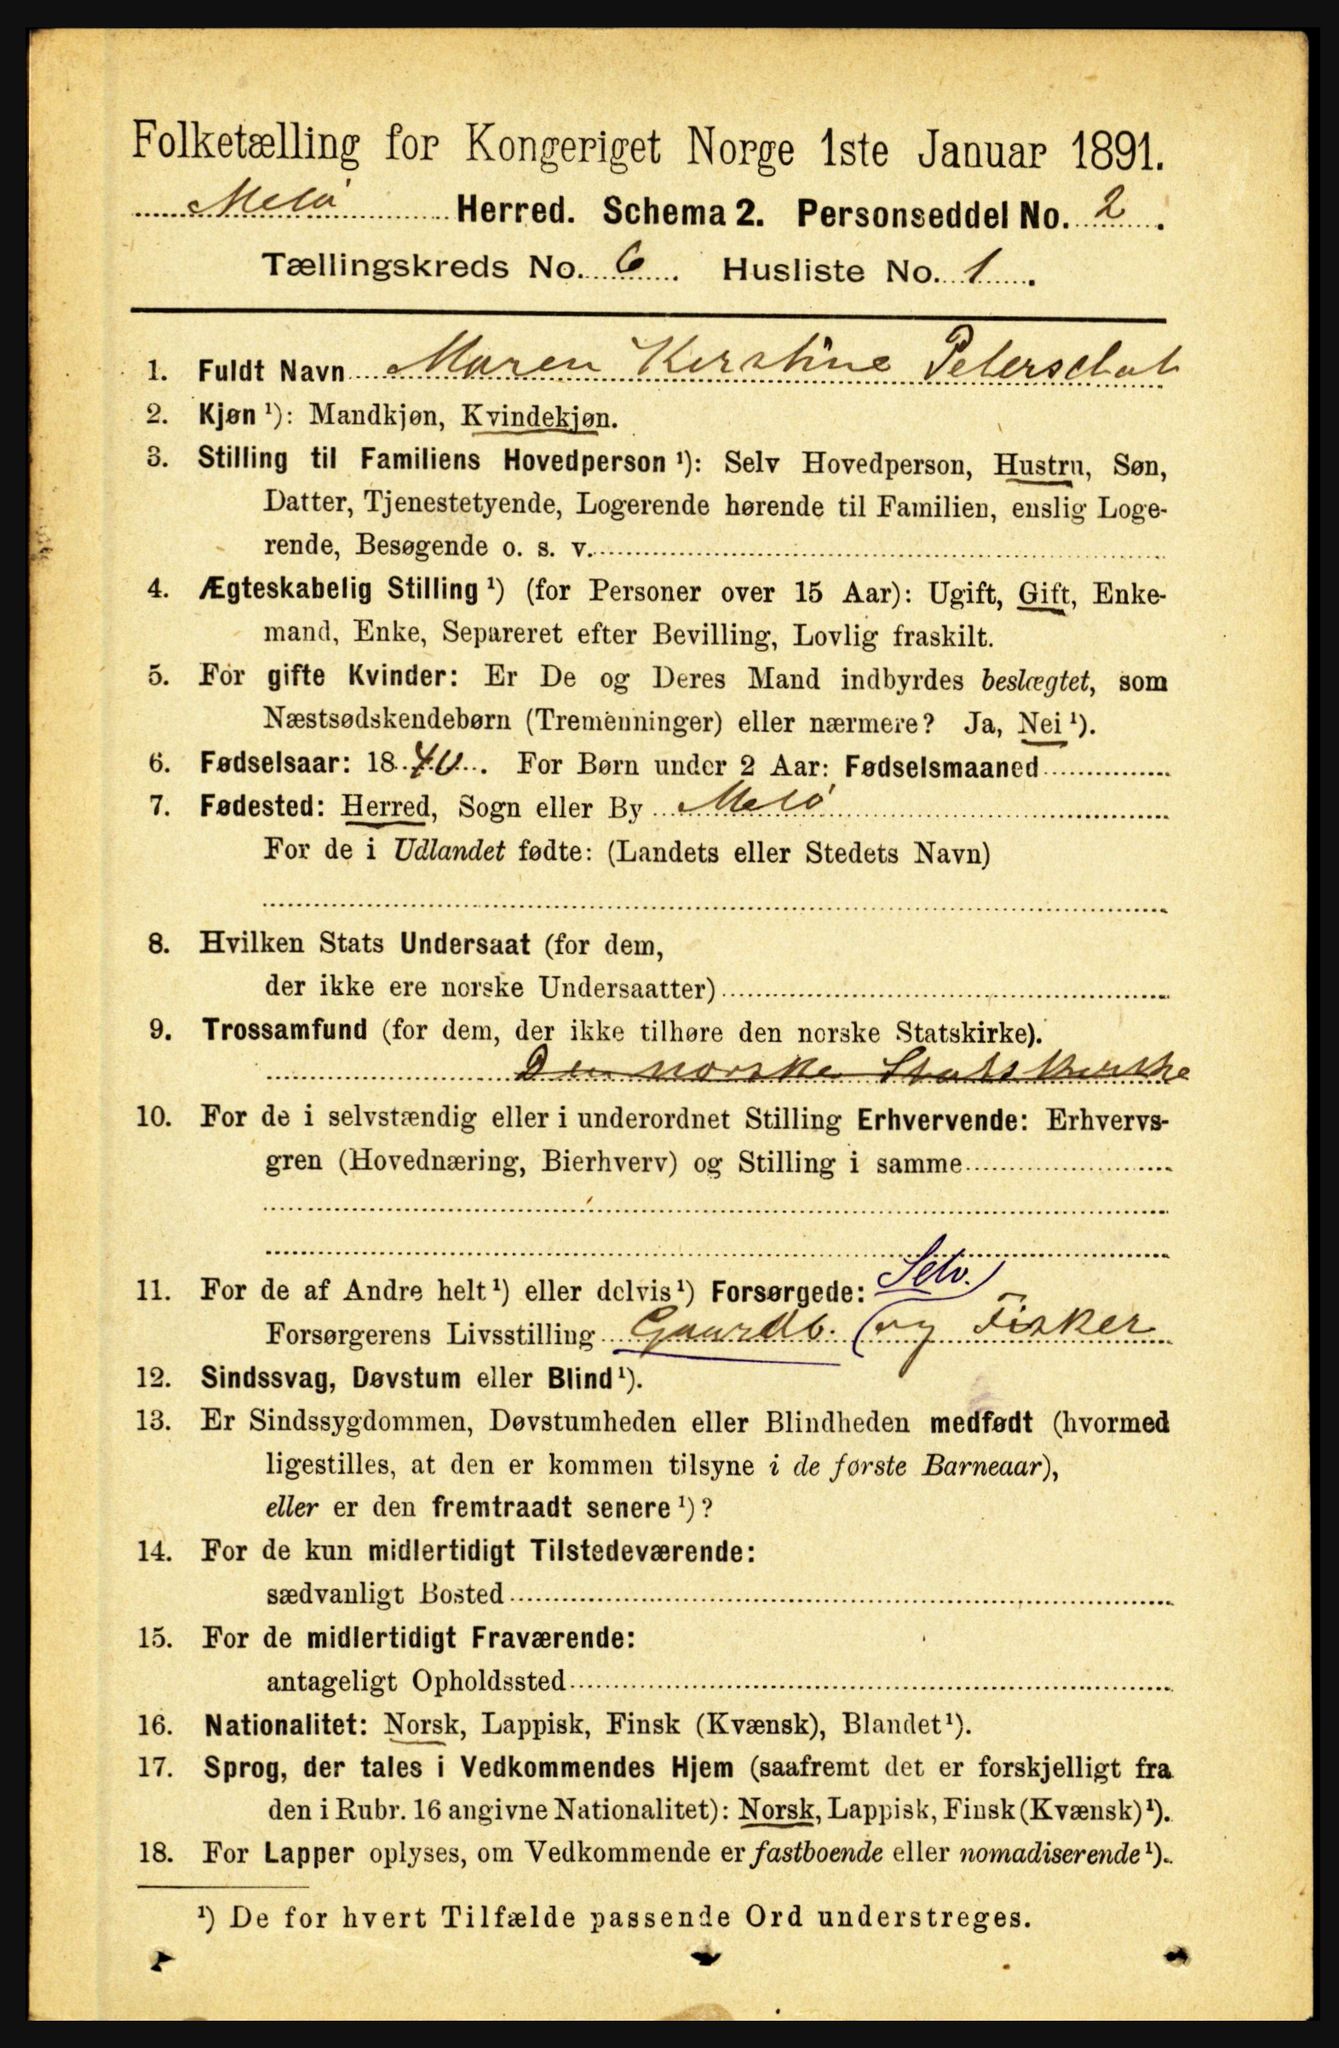 Folketælling for Kongeriget Norge 1ste Januar 1891.
Melö Herred. Schema 2. Personseddel No. 2.
Tællingskreds No. 6. Husliste No. 1.
1. Fuldt Navn Maren Kirstine Petersdat
2. Kjøn ¹): Mandkjøn, Kvindekjøn.
3. Stilling til Familiens Hovedperson ¹): Selv Hovedperson, Hustru, Søn,
Datter, Tjenestetyende, Logerende hørende til Familien, enslig Loge-
rende, Besøgende o. s. v.
4. Ægteskabelig Stilling ¹) (for Personer over 15 Aar): Ugift, Gift, Enke-
mand, Enke, Separeret efter Bevilling, Lovlig fraskilt.
5. For gifte Kvinder: Er De og Deres Mand indbyrdes beslægtet, som
Næstsødskendebørn (Tremenninger) eller nærmere? Ja, Nei ¹).
6. Fødselsaar: 1840. For Børn under 2 Aar: Fødselsmaaned
7. Fødested: Herred, Sogn eller By Melö
For de i Udlandet fødte: (Landets eller Stedets Navn)
8. Hvilken Stats Undersaat (for dem,
der ikke ere norske Undersaatter)
9. Trossamfund (for dem, der ikke tilhøre den norske Statskirke).
Den norske Statskirke
10. For de i selvstændig eller i underordnet Stilling Erhvervende: Erhvervs-
gren (Hovednæring, Bierhverv) og Stilling i samme
11. For de af Andre helt ¹) eller delvis ¹) Forsørgede: Selv.
Forsørgerens Livsstilling Gaardb. og Fisker
12. Sindssvag, Døvstum eller Blind ¹).
13. Er Sindssygdommen, Døvstumheden eller Blindheden medfødt (hvormed
ligestilles, at den er kommen tilsyne i de første Barneaar),
eller er den fremtraadt senere ¹)?
14. For de kun midlertidigt Tilstedeværende:
sædvanligt Bosted
15. For de midlertidigt Fraværende:
antageligt Opholdssted
16. Nationalitet: Norsk, Lappisk, Finsk (Kvænsk), Blandet ¹).
17. Sprog, der tales i Vedkommendes Hjem (saafremt det er forskjelligt fra
den i Rubr. 16 angivne Nationalitet): Norsk, Lappisk, Finsk (Kvænsk) ¹).
18. For Lapper oplyses, om Vedkommende er fastboende eller nomadiserende ¹).
¹) De for hvert Tilfælde passende Ord understreges.